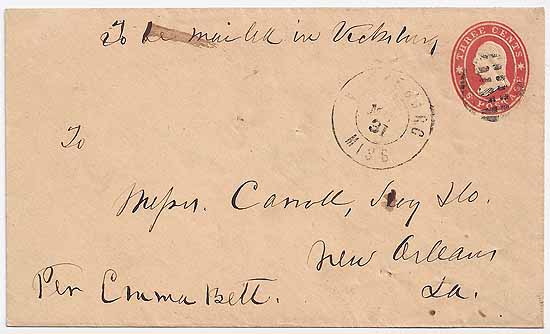 To be mailed in Vicksburg
THREE CENTS
U.S POSTAGE
VICKSBURG
31
MISS
To
Messrs. Carroll, Hoy & Co.
New Orleans
La.
Per Emma Bett.